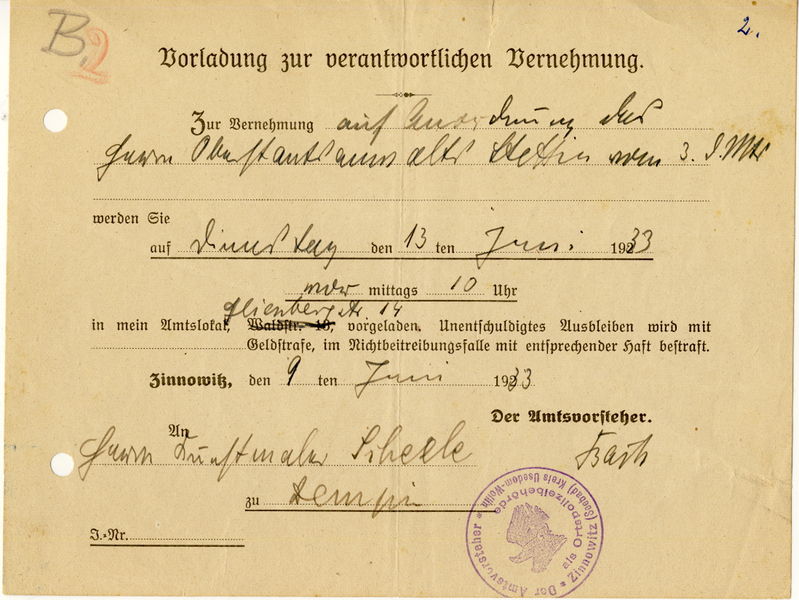 B, 2
2.
Vorladung zur verantwortlichen Vernehmung.
Zur Vernehmung auf Anordnung des
Herrn Oberstaatsanwalts Stettin vom 3. d. Mts
werden Sie
auf Dienstag den 13 ten Juni 1933
vor mittags 10 Uhr
Glienbergstr 14
in mein Amtslokal, Waldstr. 18, vorgeladen. Unentschuldigtes Ausbleiben wird mit
Geldstrafe, im Nichtbeitreibungsfalle mit entsprechender Haft bestraft.
Zinnowitz, den 9 ten Juni 1933
Der Amtsvorsteher.
An
Herrn Kunstmaler Scheele
zu Zempin
J.-Nr.
Der Amtsvorsteher
als Ortspolizeibehörde
Zinnowitz (Seebad) Kreis Usedom-Wollin